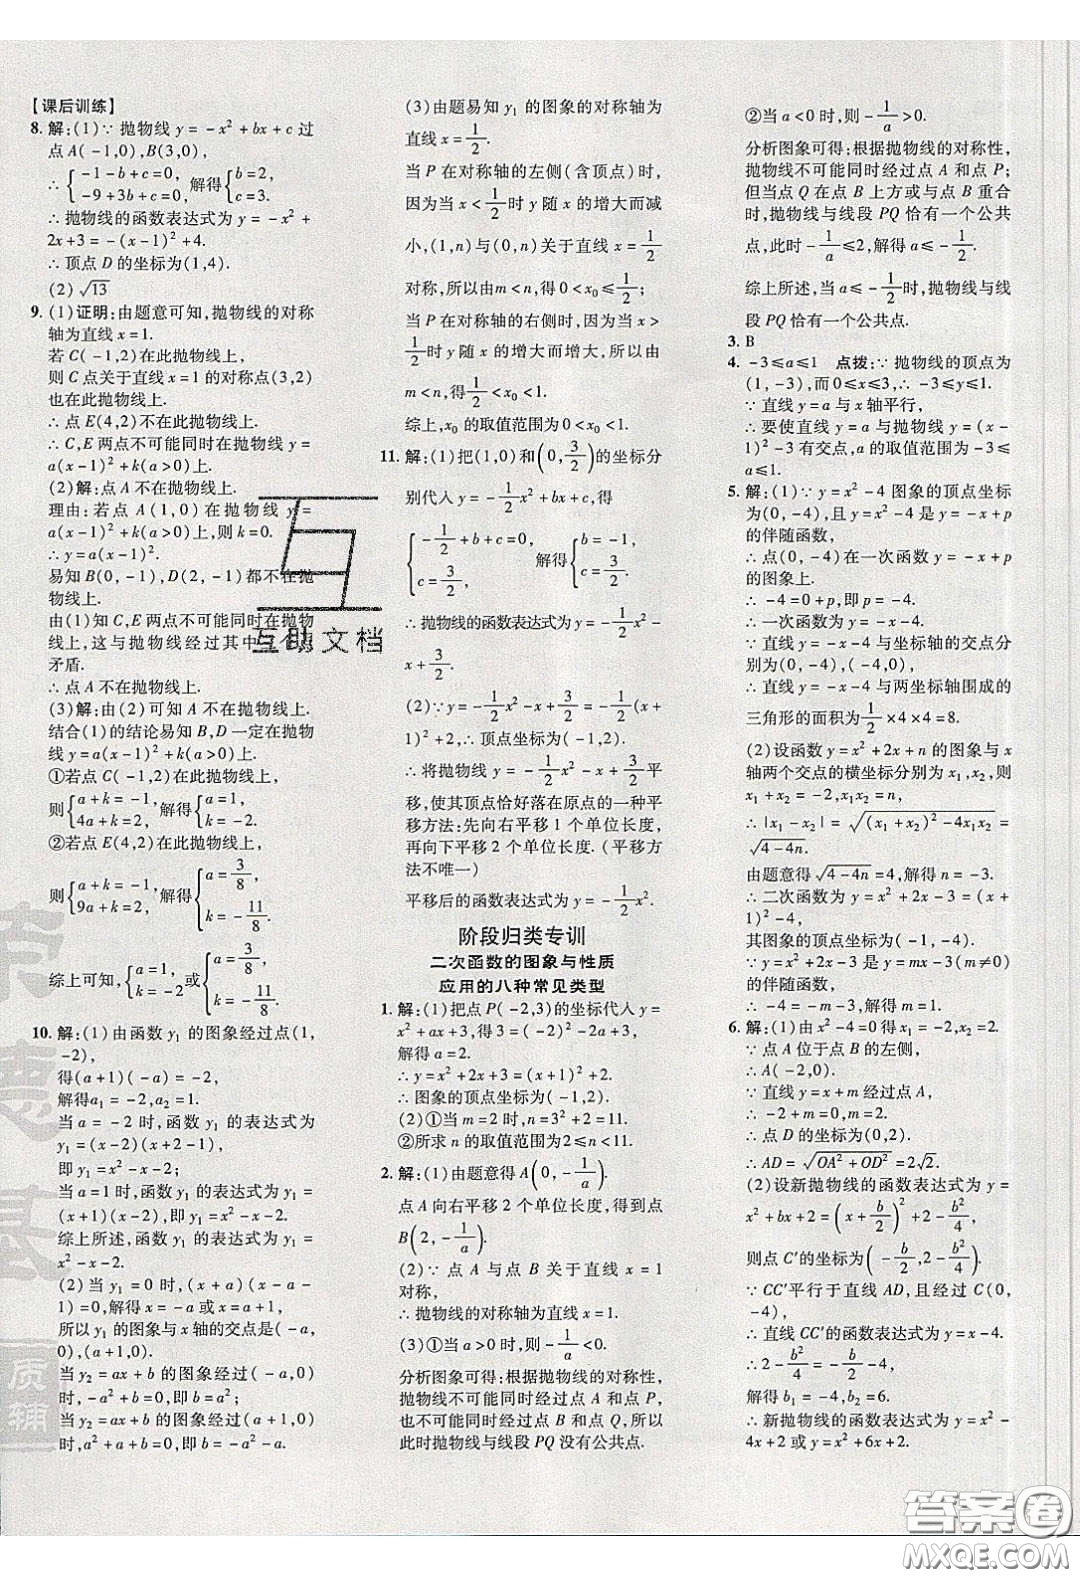 【课后训练】
8. 解:(1)∵抛物线 y=-x²+bx+c 过
点 A(-1,0),B(3,0),
∴{-1-b+c=0, -9+3b+c=0, 解得{b=2, c=3.
∴抛物线的函数表达式为 y=-x²+
2x+3=-(x-1)²+4.
∴顶点 D 的坐标为(1,4).
(2)√13
9. (1)证明:由题意可知,抛物线的对称
轴为直线 x=1.
若 C(-1,2)在此抛物线上,
则 C 点关于直线 x=1 的对称点(3,2)
也在此抛物线上.
∴点 E(4,2)不在此抛物线上.
∴C,E 两点不可能同时在抛物线 y=
a(x-1)²+k(a>0)上.
(2)解:点 A 不在抛物线上.
理由:若点 A(1,0)在抛物线 y=
a(x-1)²+k(a>0)上,则 k=0.
∴y=a(x-1)².
易知 B(0,-1),D(2,-1)都不在抛
物线上.
由(1)知 C,E 两点不可能同时在抛物
线上,这与抛物线经过其中三个点
矛盾.
∴点 A 不在抛物线上.
(3)解:由(2)可知 A 不在抛物线上.
结合(1)的结论易知 B,D 一定在抛物
线 y=a(x-1)²+k(a>0)上.
①若点 C(-1,2)在此抛物线上,
则{a+k=-1, 4a+k=2, 解得{a=1, k=-2.
②若点 E(4,2)在此抛物线上,
则{a+k=-1, 9a+k=2, 解得{a=3/8, k=-11/8.
综上可知,{a=1, k=-2 或{a=3/8, k=-11/8.
10. 解:(1)由函数 y₁ 的图象经过点(1,
-2),
得(a+1)(-a)=-2,
解得a₁=-2,a₂=1.
当 a=-2 时,函数 y₁ 的表达式为
y₁=(x-2)(x+2-1),
即 y₁=x²-x-2;
当 a=1 时,函数 y₁ 的表达式为 y₁=
(x+1)(x-2),即 y₁=x²-x-2.
综上所述,函数 y₁ 的表达式为 y₁=
x²-x-2.
(2)当 y₁=0 时,(x+a)(x-a-
1)=0,解得 x=-a 或 x=a+1,
所以 y₁ 的图象与 x 轴的交点是(-a,
0),(a+1,0).
当 y₂=ax+b 的图象经过(-a,0)
时,-a²+b=0,即 b=a²;
当 y₂=ax+b 的图象经过(a+1,0)
时,a²+a+b=0,即 b=-a²-a.
(3)由题易知 y₁ 的图象的对称轴为
直线 x=1/2.
当 P 在对称轴的左侧(含顶点)时,
因为当 x<1/2 时 y 随 x 的增大而减
小,(1,n)与(0,n)关于直线 x=1/2
对称,所以由 m<n,得 0<x₀≤1/2;
当 P 在对称轴的右侧时,因为当 x>
1/2 时 y 随 x 的增大而增大,所以由
m<n,得 1/2<x₀<1.
综上,x₀ 的取值范围为 0<x₀<1.
11. 解:(1)把(1,0)和(0,3/2)的坐标分
别代入 y=-1/2x²+bx+c,得
{-1/2+b+c=0, c=3/2, 解得{b=-1, c=3/2.
∴抛物线的函数表达式为 y=-1/2x²-
x+3/2.
(2)∵y=-1/2x²-x+3/2=-1/2(x+
1)²+2,∴顶点坐标为(-1,2).
∴将抛物线 y=-1/2x²-x+3/2 平
移,使其顶点恰好落在原点的一种平
移方法:先向右平移 1 个单位长度,
再向下平移 2 个单位长度.(平移方
法不唯一)
平移后的函数表达式为 y=-1/2x².
阶段归类专训
二次函数的图象与性质
应用的八种常见类型
1. 解:(1)把点 P(-2,3)的坐标代入 y=
x²+ax+3,得 3=(-2)²-2a+3,
解得 a=2.
∴y=x²+2x+3=(x+1)²+2.
∴图象的顶点坐标为(-1,2).
(2)①当 m=2 时,n=3²+2=11.
②所求 n 的取值范围为2≤n<11.
2. 解:(1)由题意得 A(0,-1/a).
点 A 向右平移 2 个单位长度,得到点
B(2,-1/a).
(2)∵点 A 与点 B 关于直线 x=1
对称,
∴抛物线的对称轴为直线 x=1.
(3)①当 a>0 时,-1/a<0.
分析图象可得:根据抛物线的对称性,
抛物线不可能同时经过点 A 和点 P,
也不可能同时经过点 B 和点 P,所以
此时抛物线与线段 PQ 没有公共点.
②当 a<0 时,-1/a>0.
分析图象可得:根据抛物线的对称性,
抛物线不可能同时经过点 A 和点 P;
但当点 Q 在点 B 上方或与点 B 重合
时,抛物线与线段 PQ 恰有一个公共
点,此时-1/a≤2,解得 a≤-1/2.
综上所述,当 a≤-1/2 时,抛物线与线
段 PQ 恰有一个公共点.
3. B
4. -3≤a≤1 点拨:∵抛物线的顶点为
(1,-3),而0≤x≤3,∴-3≤y≤1.
∵直线 y=a 与 x 轴平行,
∴要使直线 y=a 与抛物线 y=(x-
1)²-3 有交点,a 的取值范围为-3≤
a≤1.
5. 解:(1)∵y=x²-4 图象的顶点坐标
为(0,-4),且 y=x²-4 是 y=-x+p
的伴随函数,
∴点(0,-4)在一次函数 y=-x+p
的图象上.
∴-4=0+p,即 p=-4.
∴一次函数为 y=-x-4.
∵直线 y=-x-4 与坐标轴的交点分
别为(0,-4),(-4,0).
∴直线 y=-x-4 与两坐标轴围成的
三角形的面积为1/2×4×4=8.
(2)设函数 y=x²+2x+n 的图象与 x
轴两个交点的横坐标分别为 x₁,x₂,
则 x₁+x₂=-2,x₁x₂=n,
∴|x₁-x₂|=√((x₁+x₂)²-4x₁x₂)=
√(4-4n).
由题意得√(4-4n)=4,解得 n=-3.
∴二次函数为 y=x²+2x-3=(x+
1)²-4,
其图象的顶点坐标为(-1,-4).
∵y=x²+2x-3 是 y=mx-3(m≠0)
的伴随函数,
∴-4=-m-3,∴m=1.
6. 解:(1)由 x²-4=0得 x₁=-2,x₂=2.
∵点 A 位于点 B 的左侧,
∴A(-2,0).
∵直线 y=x+m 经过点 A,
∴-2+m=0,∴m=2.
∴点 D 的坐标为(0,2).
∴AD=√(OA²+OD²)=2√2.
(2)设新抛物线的函数表达式为 y=
x²+bx+2=(x+b/2)²+2-b²/4,
则点 C′的坐标为(-b/2,2-b²/4).
∵CC′平行于直线 AD,且经过 C(0,
-4),
∴直线 CC′的函数表达式为 y=x-4.
∴2-b²/4=-b/2-4,
解得 b₁=-4,b₂=6.
∴新抛物线的函数表达式为 y=x²-
4x+2 或 y=x²+6x+2.
互助文档
荣德基
质
辅
答案圈
MXQE.COM